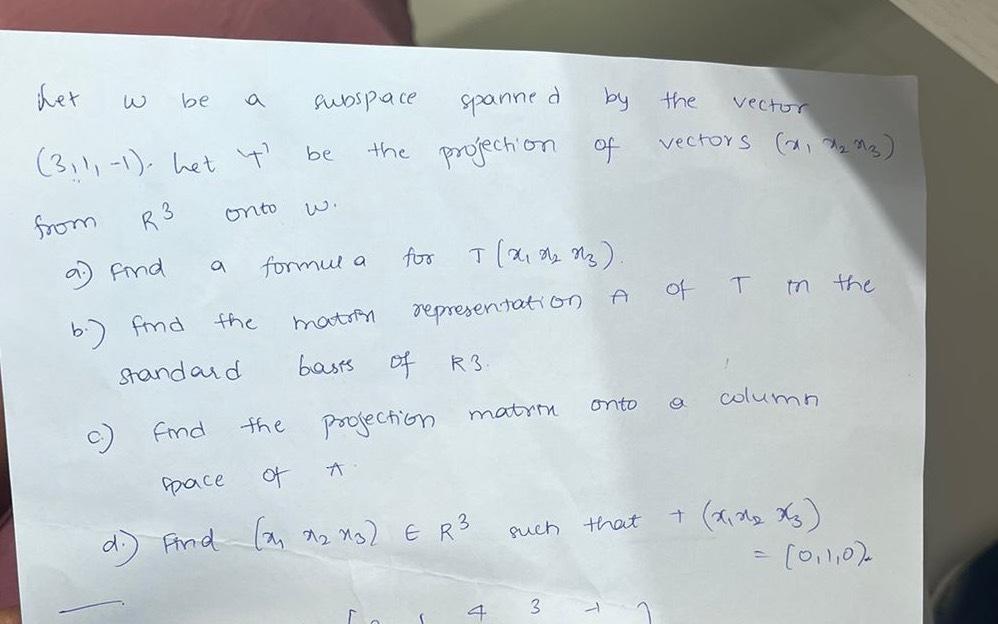 Let w be a subspace spanned by the vector
(3,1,-1). Let 'T' be the projection of vectors (x₁ x₂ x₃)
from R³ onto w.
a.) Find a formula for T(x₁ x₂ x₃).
b.) find the matrix representation A of T in the
standard basis of R3.
c.) find the projection matrix onto a column
space of A.
d.) Find (x₁ x₂ x₃) ∈ R³ such that T (x₁ x₂ x₃)
= (0,1,0).
4 3 -1